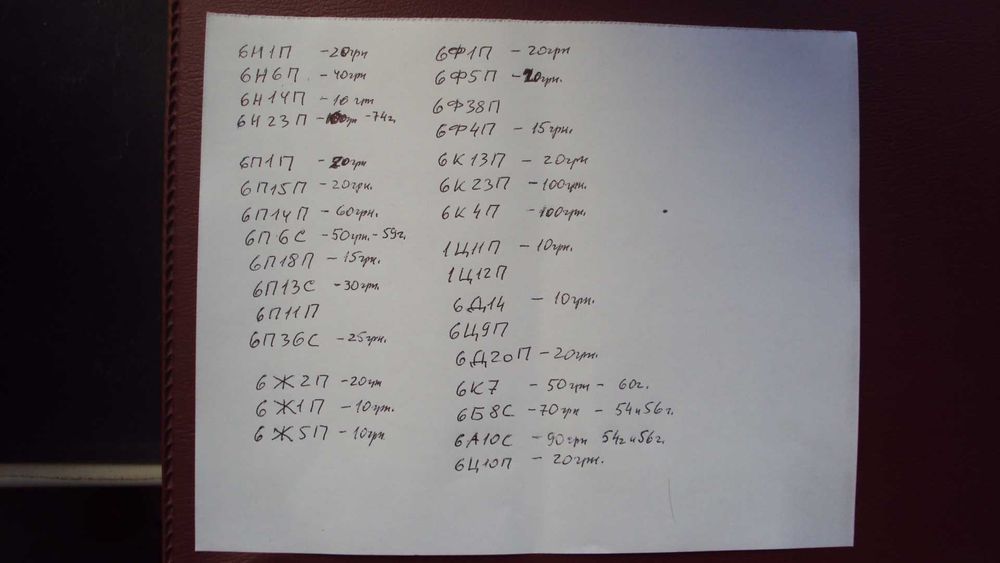 6Н1П -20грн
6Н6П -40грн
6Н14П -10грн
6Н23П - -74г.
6П1П -20грн
6П15П -20грн.
6П14П -60грн.
6П6С -50грн.-59г.
6П18П -15грн.
6П13С -30грн.
6П11П
6П36С -25грн.
6Ж2П -20грн
6Ж1П -10грн.
6Ж5П -10грн
6Ф1П -20грн
6Ф5П -20грн.
6Ф38П
6Ф4П -15грн.
6К13П -20грн
6К23П -100грн.
6К4П -100грн.
1Ц11П -10грн.
1Ц12П
6Д14 -10грн.
6Ц9П
6Д20П -20грн.
6К7 -50грн - 60г.
6Б8С -70грн - 54и56г.
6А10С -90грн 54г и56г.
6Ц10П -20грн.